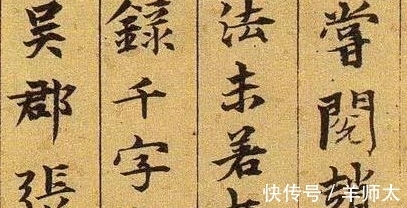 嘗閱
法未若
錄千字
吳郡張
快传号/羊师太